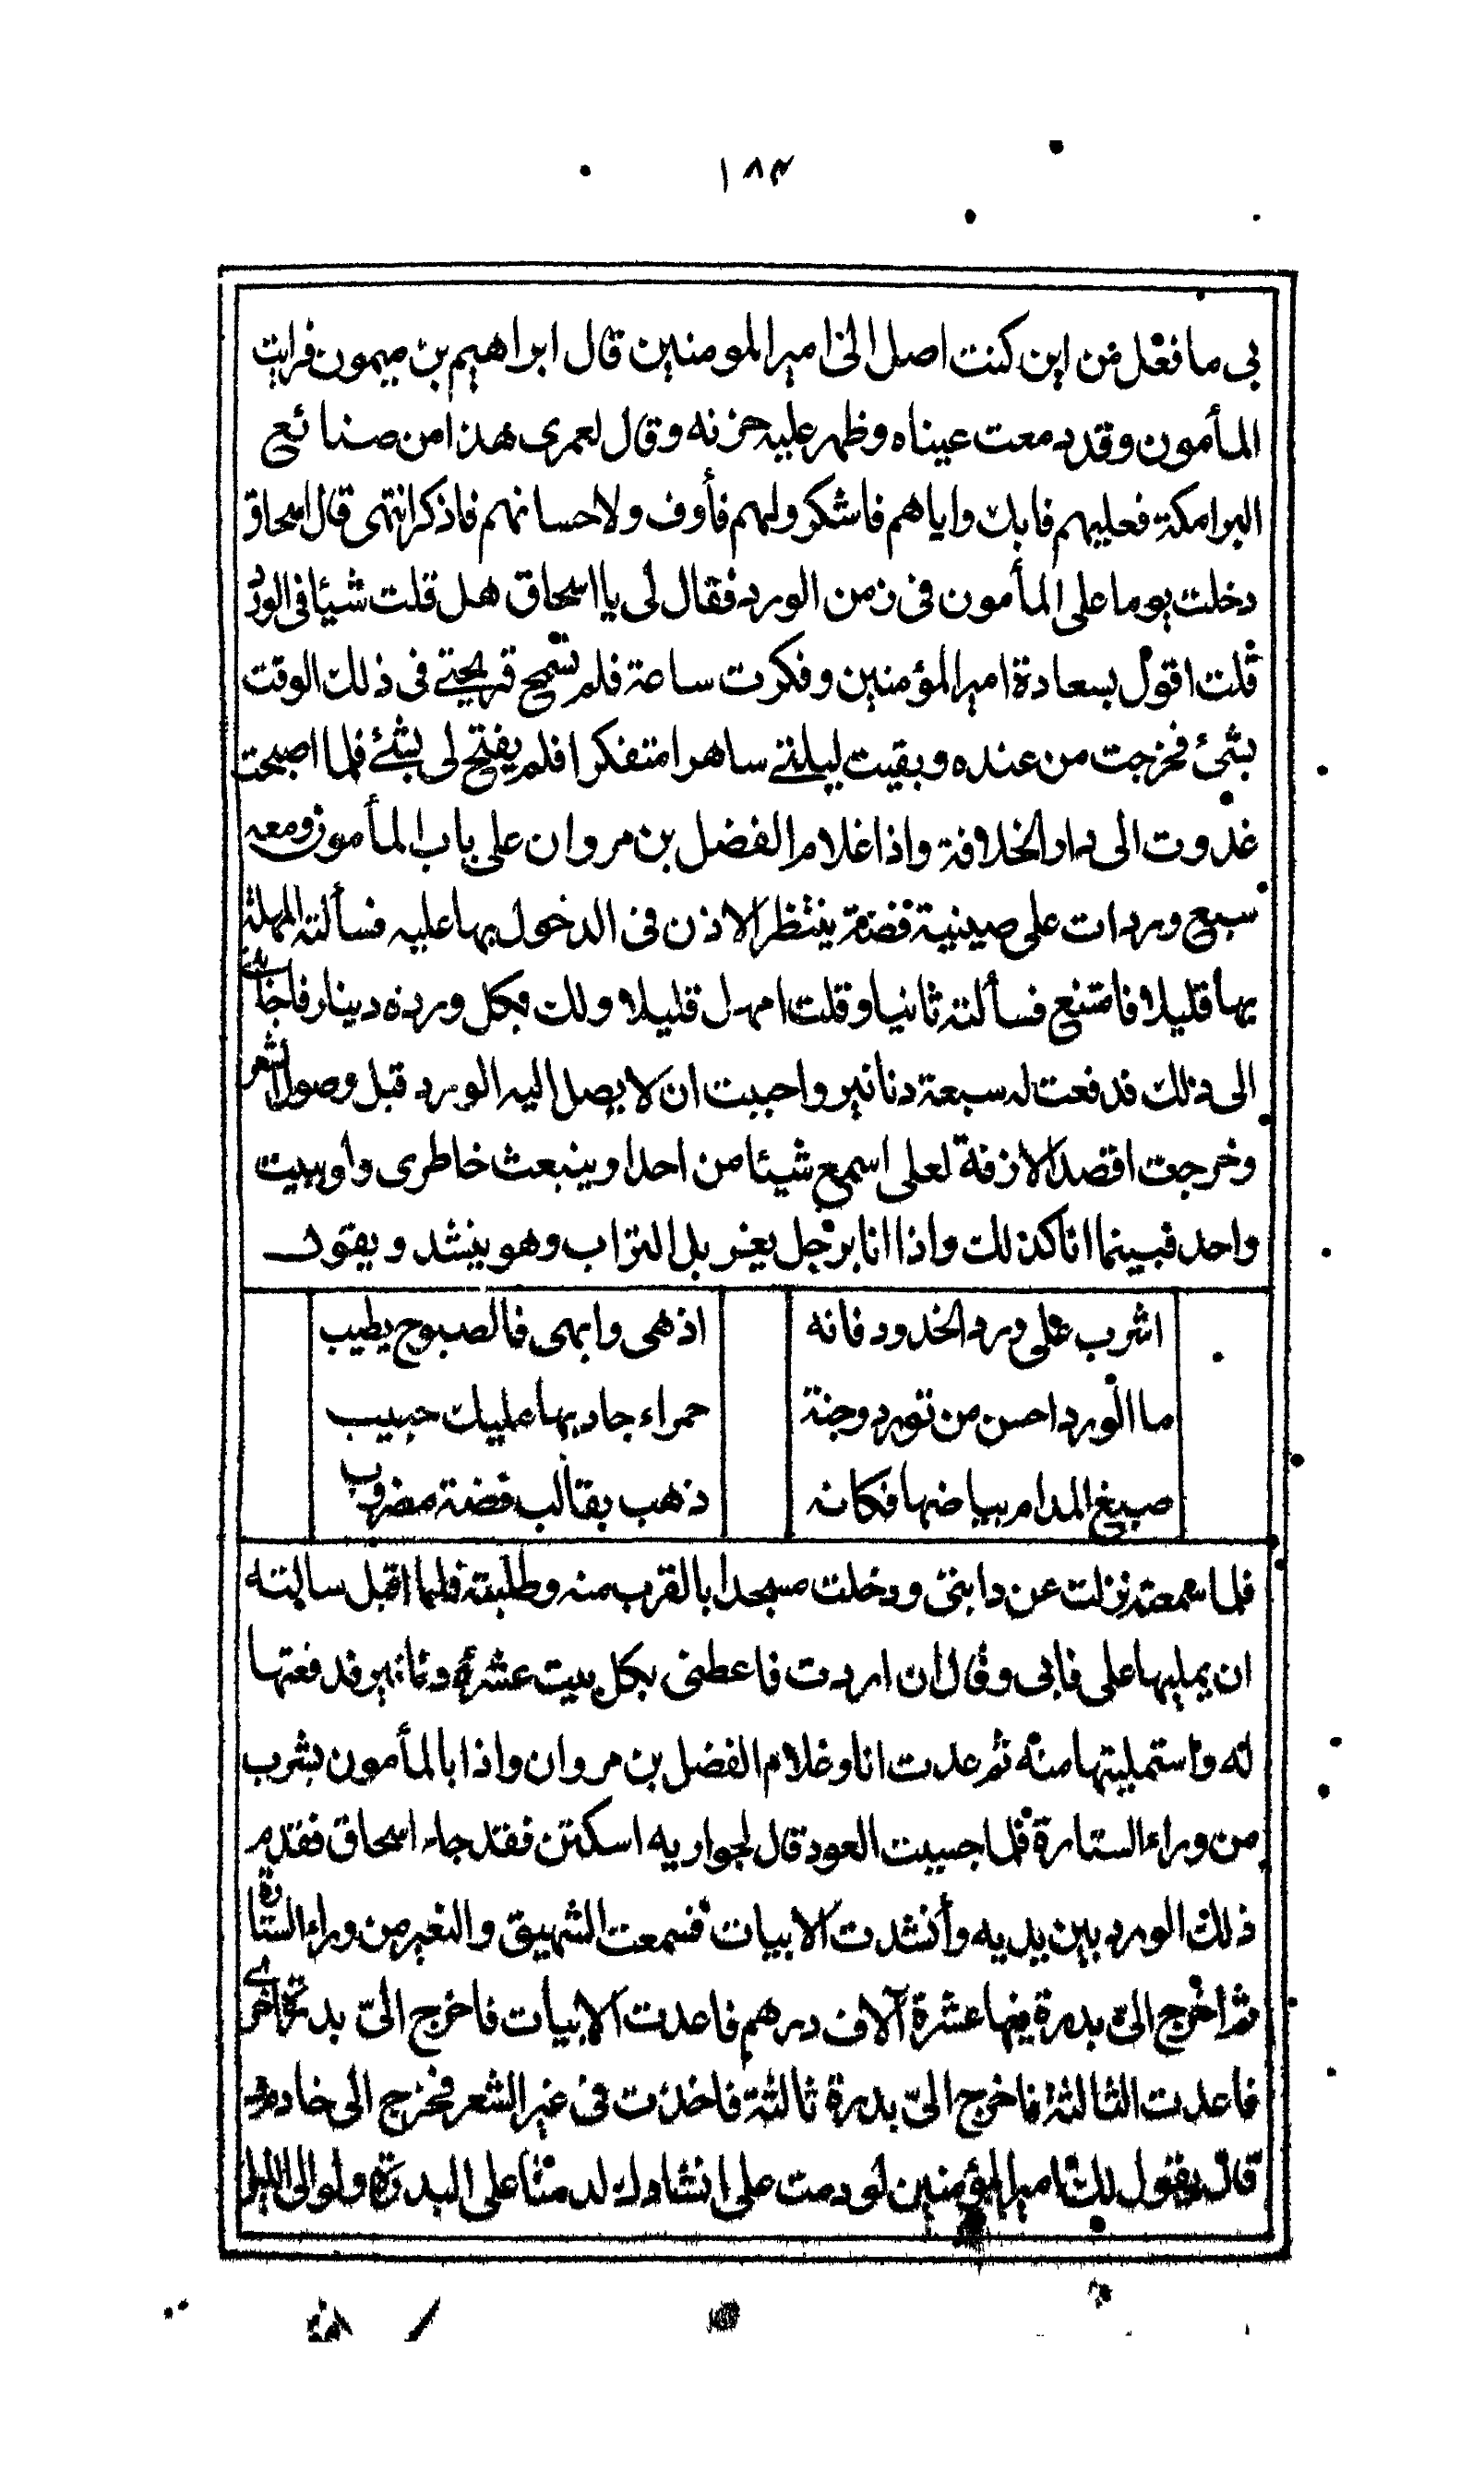 ١٨٣
بى ما فعل من اين كنت اصل الى امير المومنين قال ابراهيم بن ميمون فرايت
المأمون وقد دمعت عيناه وظهر عليه حزنه وقال لعمرى هذا من صنائع
البرامكة فعليهم فابك واياهم فاشكر ولهم فأوف ولاحسانهم فاذكر انتهى قال اسحاق
دخلت يوما على المأمون فى زمن الورد فقال لى يا اسحاق هل قلت شيئا فى الورد
قلت اقول بسعادة امير المؤمنين وفكرت ساعة فلم تسمح قريحتى فى ذلك الوقت
بشئ فخرجت من عنده وبقيت ليلتى ساهرا متفكرا فلم يفتح لى بشئ فلما اصبحت
غدوت الى دار الخلافة واذا غلام الفضل بن مروان على باب المأمون ومعه
سبع وردات على صينية فضة ينتظر الاذن فى الدخول بها عليه فسألته المهلة
بها قليلا فامتنع فسألته ثانيا وقلت امهل قليلا ولك بكل وردة دينار فاجابنى
الى ذلك فدفعت له سبعة دنانير واحببت ان لا يصل اليه الورد قبل وصول الشعر
وخرجت اقصد الازقة لعلى اسمع شيئا من احد او ينبعث خاطرى ولو ببيت
واحد فبينما انا كذلك واذا انا برجل يغربل التراب وهو ينشد ويقول
اشرب على ورد الخدود فانه اذهى وابهى فالصبوح يطيب
ما الورد احسن من تورد وجنة حمراء جاد بها عليك حبيب
صبغ المدام بياضها فكانه ذهب بقالب فضة مضروب
فلما سمعته نزلت عن دابتى ودخلت مسجدا بالقرب منه وطلبته فلما اقبل سالته
ان يمليها على فابى وقال ان اردت فاعطنى بكل بيت عشرة دنانير فدفعتها
له واستمليتها منه ثم عدت انا وغلام الفضل بن مروان واذا بالمأمون يشرب
من وراء الستارة فلما جسيت العود قال لجواريه اسكتن فقد جاء اسحاق فقدم
ذلك الورد بين يديه وأنشدت الابيات فسمعت الشهيق والنغير من وراء الستارة
ثم اخرج الىّ بدرة فيها عشرة آلاف درهم فاعدت الابيات فاخرج الىّ بدرة اخرى
فاعدت الثالثة فاخرج الىّ بدرة ثالثة فاخذت فى غير الشعر فخرج الى خادم
قال يقول لك امير المؤمنين لو دمت على انشادك لدمنا على البدرة ولو الى الليل